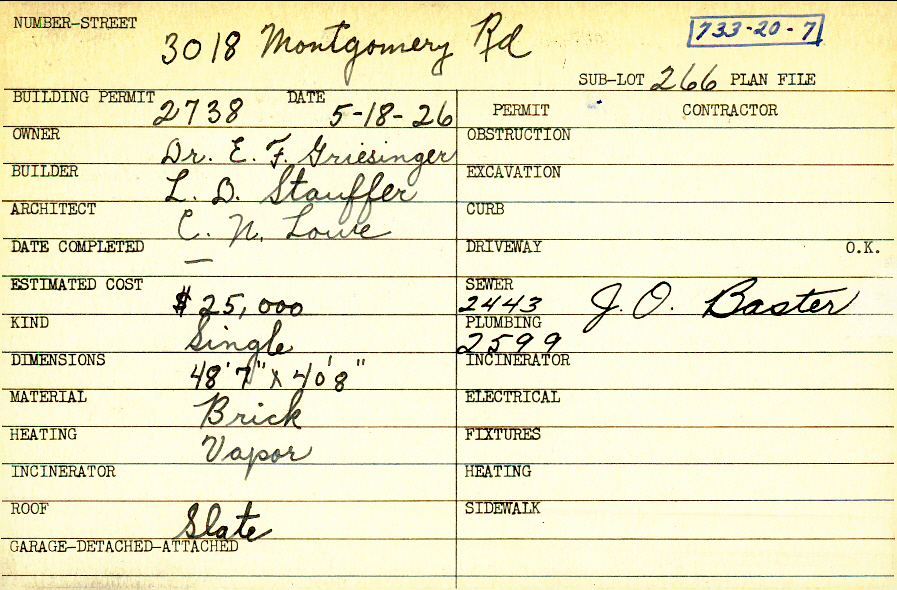 NUMBER-STREET 3018 Montgomery Rd 733-20-7
SUB-LOT 266 PLAN FILE
BUILDING PERMIT 2738 DATE 5-18-26
PERMIT CONTRACTOR
OWNER Dr. E. F. Griesinger
OBSTRUCTION
BUILDER L. D. Stauffer
EXCAVATION
ARCHITECT C. N. Lowe
CURB
DATE COMPLETED —
DRIVEWAY O.K.
ESTIMATED COST $25,000
SEWER 2443 J. O. Baster
KIND Single
PLUMBING 2599
DIMENSIONS 48'7" x 40'8"
INCINERATOR
MATERIAL Brick
ELECTRICAL
HEATING Vapor
FIXTURES
INCINERATOR
HEATING
ROOF Slate
SIDEWALK
GARAGE-DETACHED-ATTACHED